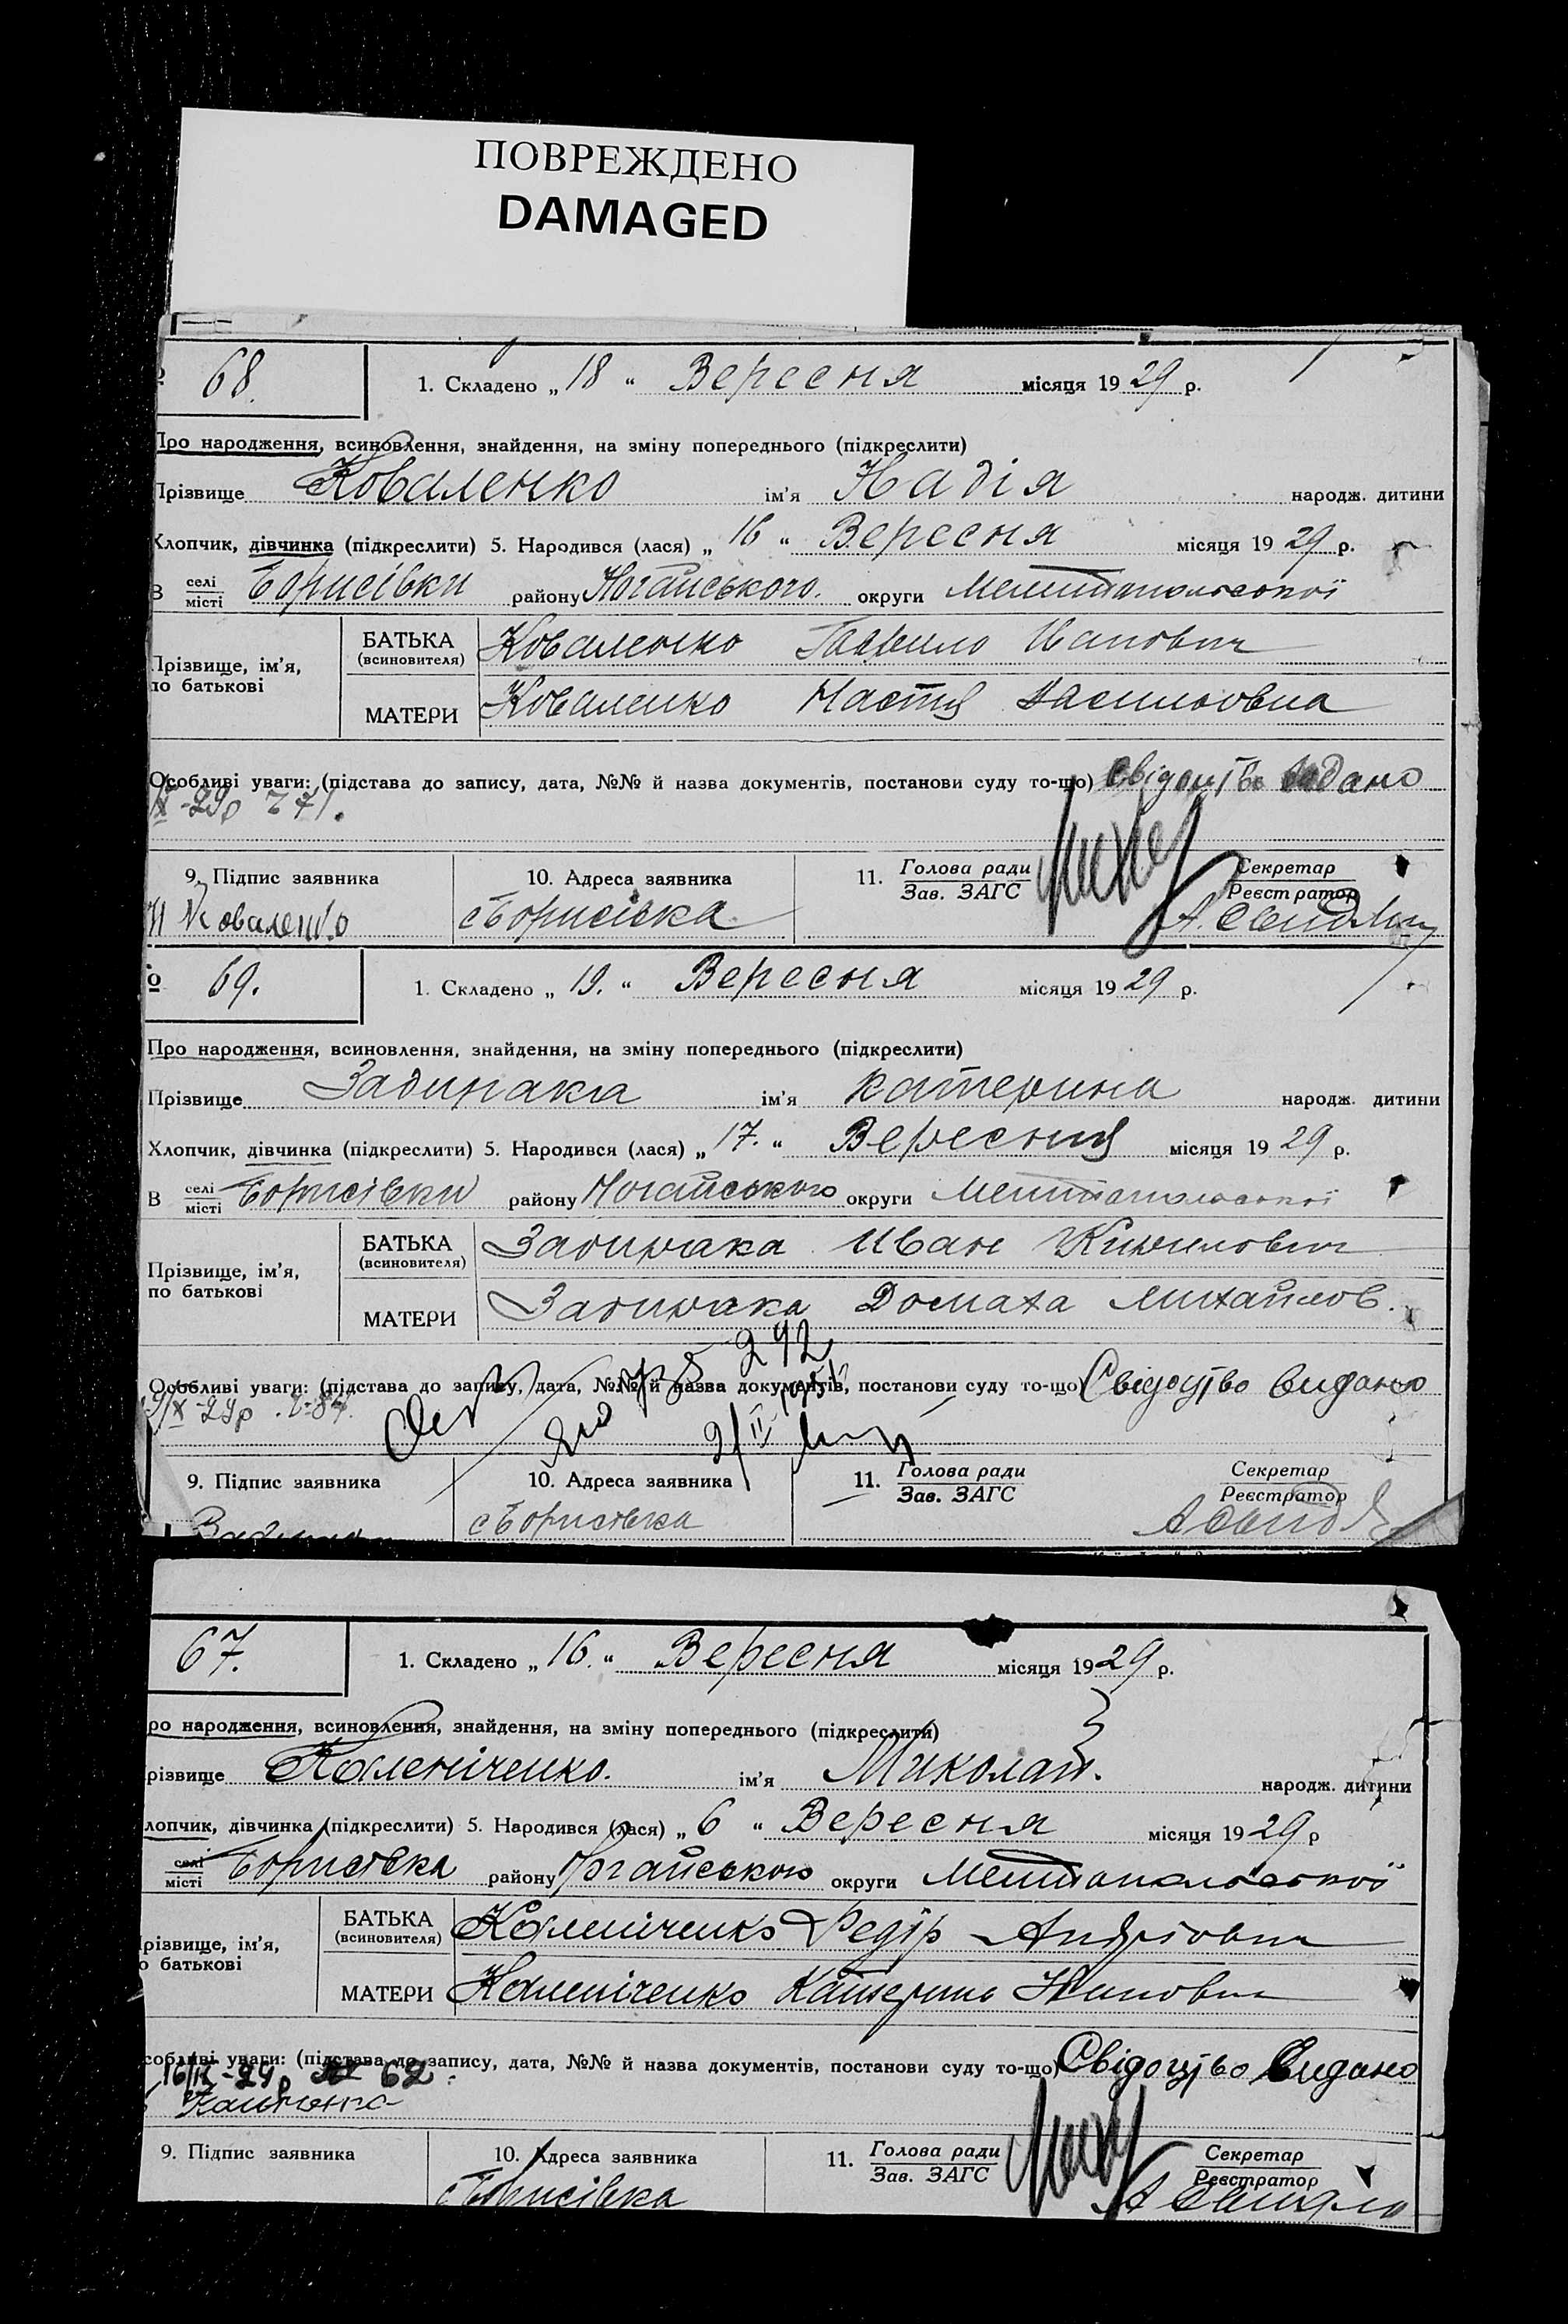 ПОВРЕЖДЕНО
DAMAGED
68. 1. Складено „ 18 “ Вересня місяця 19 29 р.
Про народження, всиновлення, знайдення, на зміну попереднього (підкреслити)
Прізвище Коваленко ім'я Надія народж. дитини
Хлопчик, дівчинка (підкреслити) 5. Народився (лася) „ 16 “ Вересня місяця 19 29 р.
В селі/місті Борисівки району Ногайського. округи Мелитопольської
Прізвище, ім'я, по батькові
БАТЬКА (всиновителя) Коваленко Гаврило Иванович
МАТЕРИ Коваленко Настя Васильовна
Особливі уваги: (підстава до запису, дата, №№ й назва документів, постанови суду то-що) Свідоцтво видано
IX-29р 71.
9. Підпис заявника 10. Адреса заявника 11. Голова ради/Зав. ЗАГС Секретар/Реєстратор
Коваленко с Борисівка
69. 1. Складено „ 19. “ Вересня місяця 19 29 р.
Про народження, всиновлення, знайдення, на зміну попереднього (підкреслити)
Прізвище Задирака ім'я Катерина народж. дитини
Хлопчик, дівчинка (підкреслити) 5. Народився (лася) „ 17. “ Вересня місяця 19 29 р.
В селі/місті Борисівки району Ногайського округи Мелитопольської
Прізвище, ім'я, по батькові
БАТЬКА (всиновителя) Задирака Иван Кирилович
МАТЕРИ Задирака Домаха Михайлов.
292
Особливі уваги: (підстава до запису, дата, №№ й назва документів, постанови суду то-що) Свідоцтво видано
9. Підпис заявника 10. Адреса заявника 11. Голова ради/Зав. ЗАГС Секретар/Реєстратор
с Борисівка
67. 1. Складено „ 16. “ Вересня місяця 19 29 р.
ро народження, всиновлення, знайдення, на зміну попереднього (підкреслити)
різвище Калениченко. ім'я Миколай. народж. дитини
лопчик, дівчинка (підкреслити) 5. Народився (лася) „ 6 “ Вересня місяця 19 29 р
селі/місті Борисівка району Ногайського округи Мелитопольської
різвище, ім'я, о батькові
БАТЬКА (всиновителя) Каленіченко Федір Андріович
МАТЕРИ Каленіченко Катерина Иванов
собливі уваги: (підстава до запису, дата, №№ й назва документів, постанови суду то-що) Свідоцтво Видано
16/IX-29р № 62.
9. Підпис заявника 10. Адреса заявника 11. Голова ради/Зав. ЗАГС Секретар/Реєстратор
с Борисівка